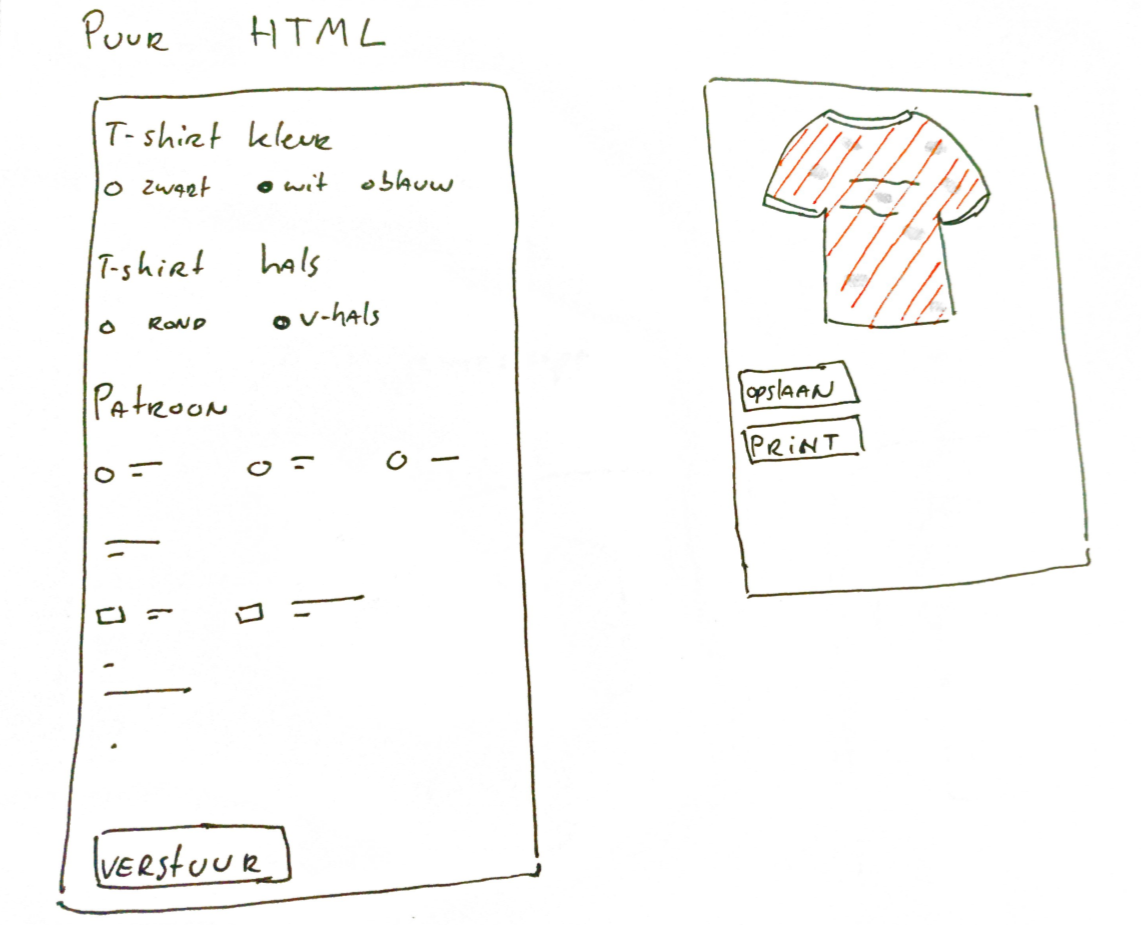 Puur HTML
T-shirt kleur
zwart wit blauw
T-shirt hals
rond V-hals
Patroon
Verstuur
opslaan
Print